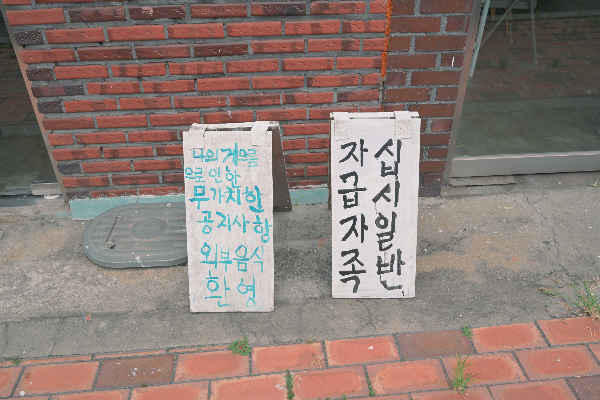 나의 게으름
으로 인한
무가치한
공지사항
외부음식
환영
십시일반
자급자족